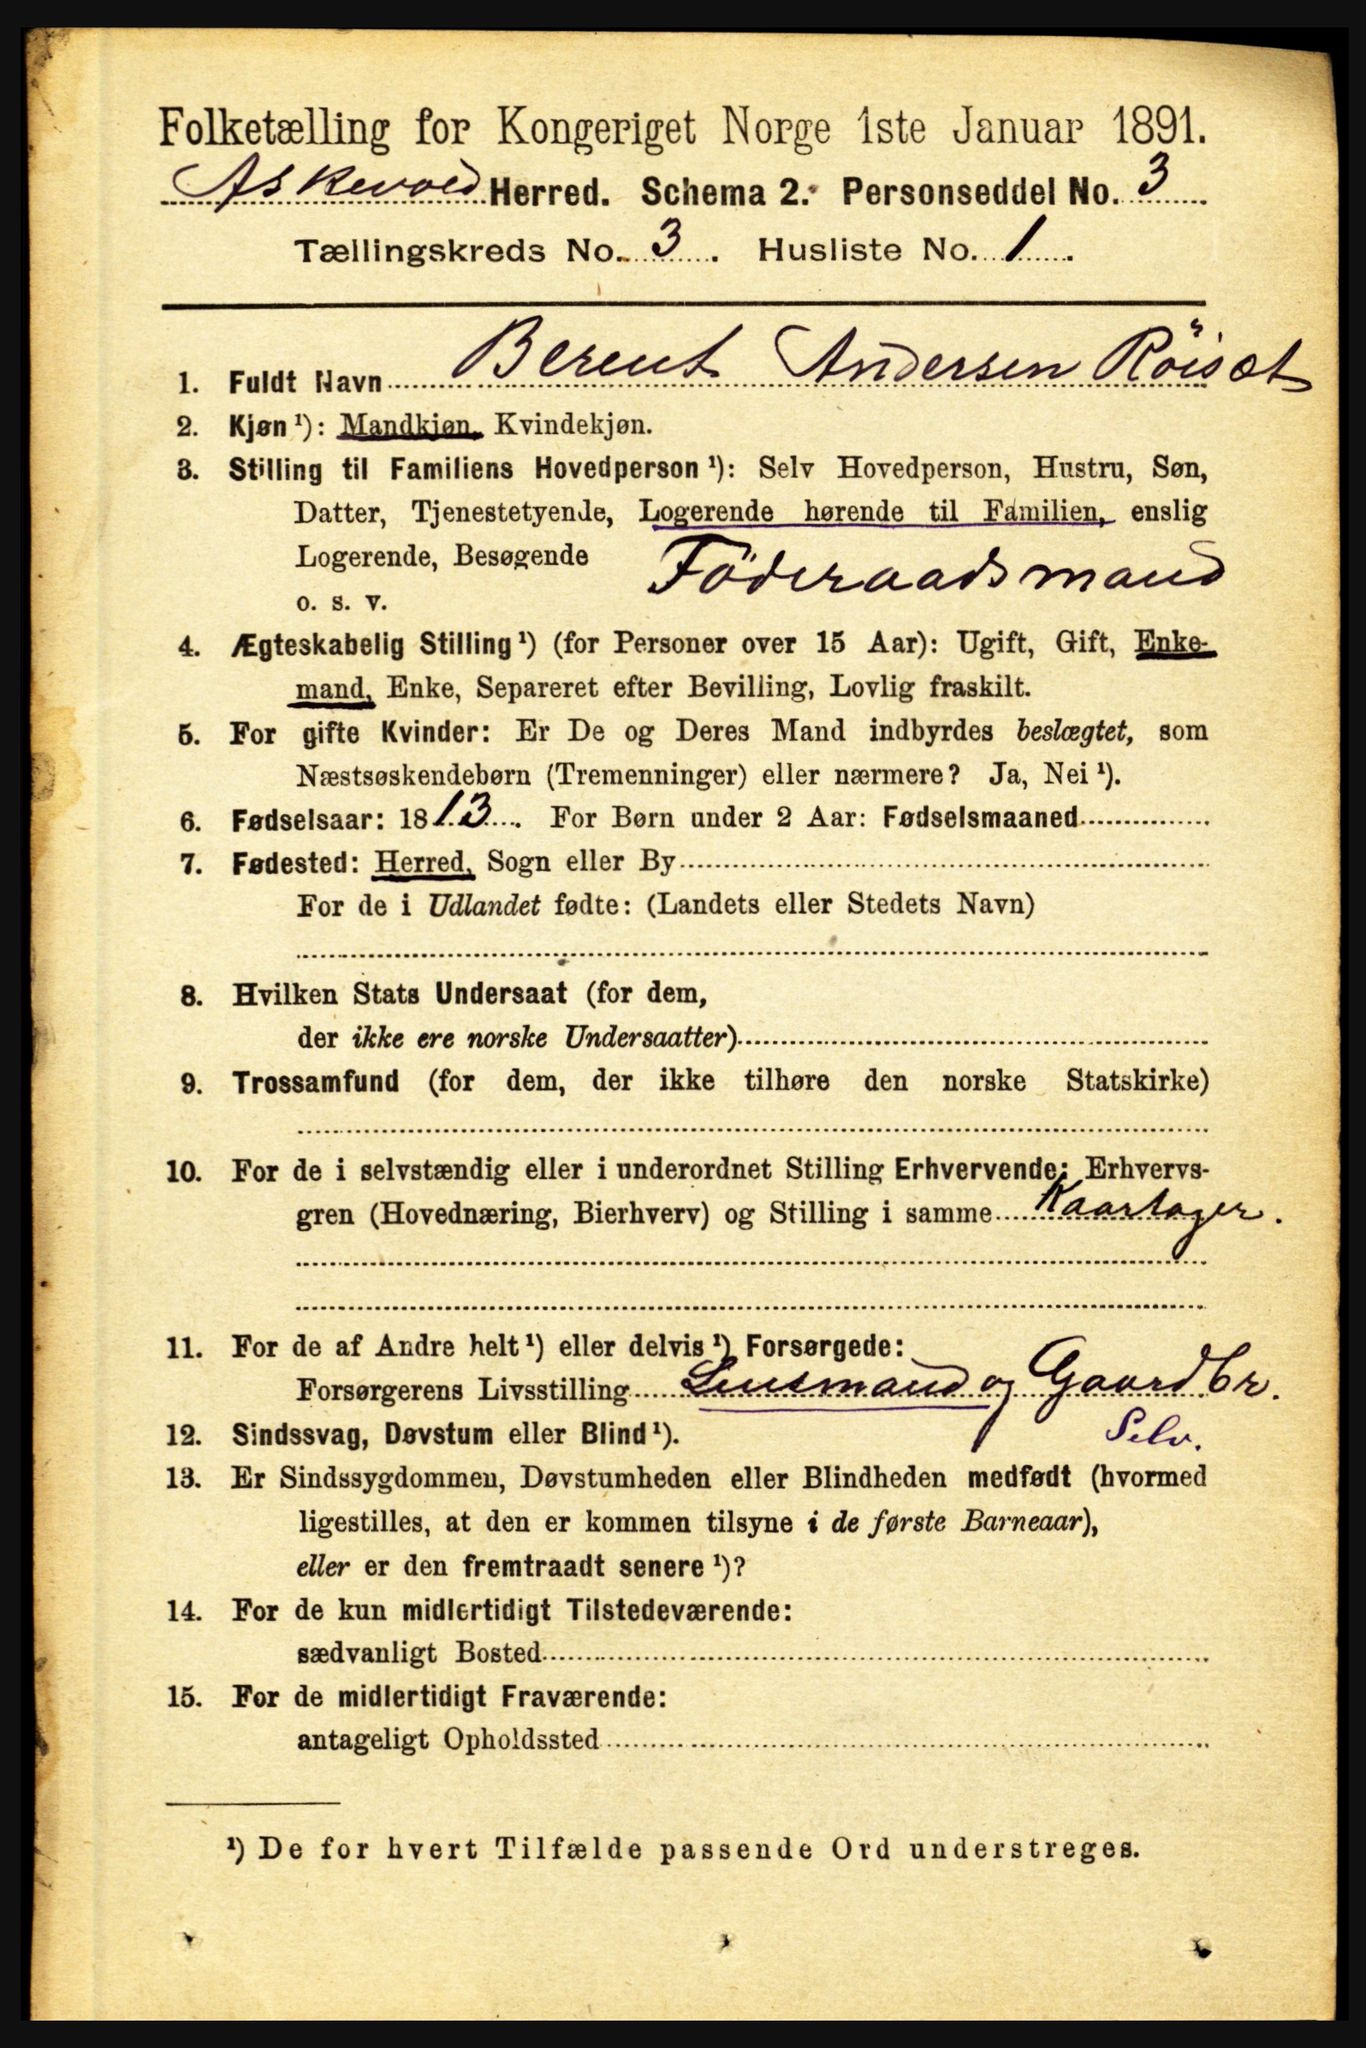 Folketælling for Kongeriget Norge 1ste Januar 1891.
Askevold Herred. Schema 2. Personseddel No. 3
Tællingskreds No. 3. Husliste No. 1.
1. Fuldt Navn Berent Andersen Röisæt
2. Kjøn ¹): Mandkjøn, Kvindekjøn.
3. Stilling til Familiens Hovedperson ¹): Selv Hovedperson, Hustru, Søn,
Datter, Tjenestetyende, Logerende hørende til Familien, enslig
Logerende, Besøgende Föderaadsmand
o. s. v.
4. Ægteskabelig Stilling ¹) (for Personer over 15 Aar): Ugift, Gift, Enke-
mand, Enke, Separeret efter Bevilling, Lovlig fraskilt.
5. For gifte Kvinder: Er De og Deres Mand indbyrdes beslægtet, som
Næstsøskendebørn (Tremenninger) eller nærmere? Ja, Nei ¹).
6. Fødselsaar: 1813. For Børn under 2 Aar: Fødselsmaaned
7. Fødested: Herred, Sogn eller By
For de i Udlandet fødte: (Landets eller Stedets Navn)
8. Hvilken Stats Undersaat (for dem,
der ikke ere norske Undersaatter)
9. Trossamfund (for dem, der ikke tilhøre den norske Statskirke)
10. For de i selvstændig eller i underordnet Stilling Erhvervende: Erhvervs-
gren (Hovednæring, Bierhverv) og Stilling i samme Kaartager.
11. For de af Andre helt ¹) eller delvis ¹) Forsørgede:
Forsørgerens Livsstilling Lensmand og Gaardbr.
12. Sindssvag, Døvstum eller Blind ¹). Selv.
13. Er Sindssygdommen, Døvstumheden eller Blindheden medfødt (hvormed
ligestilles, at den er kommen tilsyne i de første Barneaar),
eller er den fremtraadt senere ¹)?
14. For de kun midlertidigt Tilstedeværende:
sædvanligt Bosted
15. For de midlertidigt Fraværende:
antageligt Opholdssted
¹) De for hvert Tilfælde passende Ord understreges.